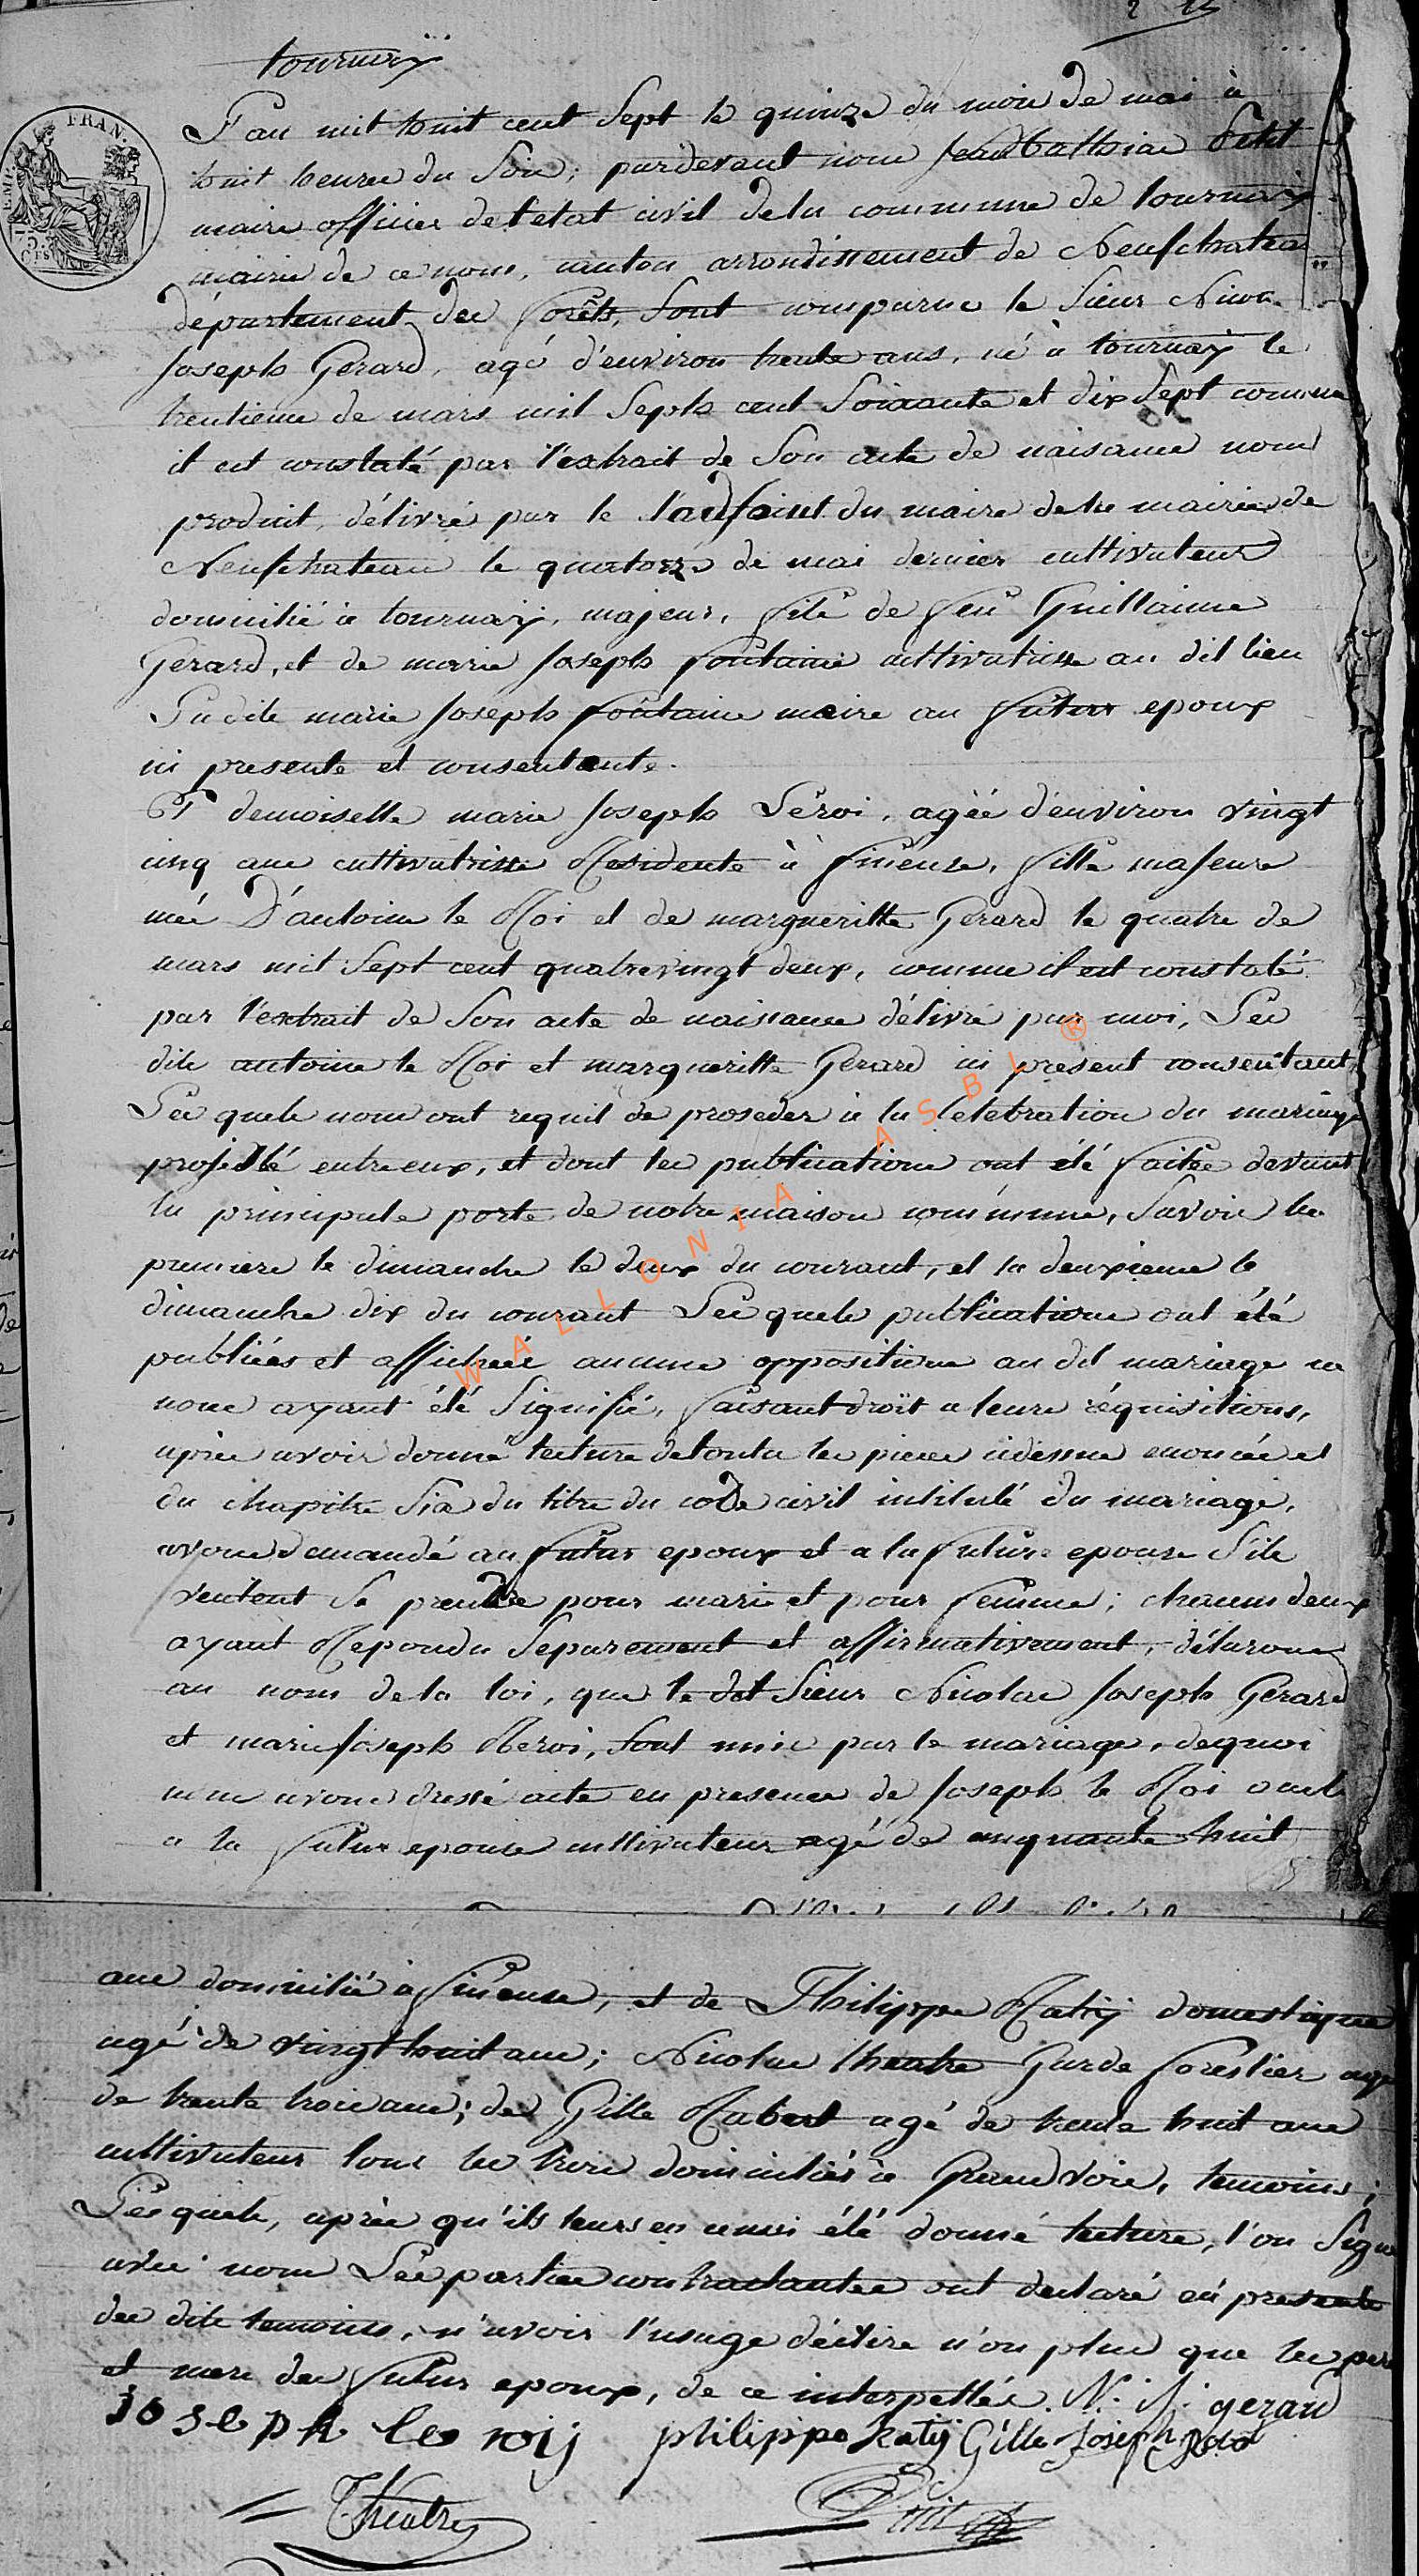 tournaÿ
L'an mil huit cent Sept le quinze du mois de mai à
huit heures du Soir, pardevant nous Jean bathias Petit
maire officier de l'etat civil de la commune de tournaÿ
mairie de ce nom, canton arrondissement de Neufchateau
département des forêts, Sont comparus le Sieur Nicolas
Joseph Gerard, agé d'environ trente ans, né à tournaÿ le
trentieme de mars mil Septs cent Soixante et dix Sept comme
il est constaté par l'extrait de Son acte de naisance nous
produit, délivré par le l'adjoint du maire de la mairie de
Neufchateau le quatorze de mai dernier cultivateur
domicilié à tournaÿ, majeur, fils de feu Guillaume
Gerard, et de marie Joseph fontaine cultivatrisse au dit lieu
La dite marie Joseph fontaine maire au futur epoux
ici presente et consentante.
Et demoiselle marie Joseph Léroi, agéé d'environ vingt
cinq ans cultivatrisse Residente à fineuse, fille majeure
née D'antoine le Roi et de margueritte Gerard le quatre de
mars mil Sept cent quatrevingt deux, comme il est constaté
par l'extrait de Son acte de naissance délivré par moi, Les
dits antoine le Roi et margueritte Gerard ici present consentant,
Les quels nous ont requit de proseder à la Celebration du mariage
projetté entre eux, et dont les publications ont été faites devant
la principale porte de notre maison commune, Savoir la
premiere le dimanche le deux du courant, et la deuxieme le
dimanche dix du courant Les quels publications ont été
publiées et affichéés aucune oppositions au dit mariage ne
nous ayant été Signifié, faisant droit a leurs réquisitions,
après avoir donné lecture de toutes les pieces cidessus enoncées et
du chapitre Six du titre du code civil intitulé du mariage,
avons demandé au futur epoux et a la future epouse S'ils
veulent Se prendre pour mari et pour femme; chacuns deux
ayant Repondu Separement et affirmativement, déclarons
au nom de la loi, que le dit Sieur Nicolas Joseph Gerard
et marie Joseph Leroi, Sont unis par le mariage, dequoi
nous avons dressé acte en presence de Joseph le Roi oncle
a la futur epouse cultivateur agé de cinquante huit
ans domicilié à fineuse, et de Philippe Katÿ domestique
agé de vingt huit ans; Nicolas theatre Garde forestier agé
de trente trois ans; de Gille Robert agé de trente huit ans
cultivateur tous les trois domiciliés à Grandvoir, temoins;
Les quels, après qu'ils leurs en aussi été donné lecture, l'on Signé
avec nous Les parties contractantes ont declaré en presente
des dits temoins, n'avoir l'usage décrire n'on plus que les pere
et mere des futur epoux, de ce interpellés. N: J: gerard
joseph le roij philippe katij Gille Joseph
Theatre
Petit
WALLONIA ASBL ®